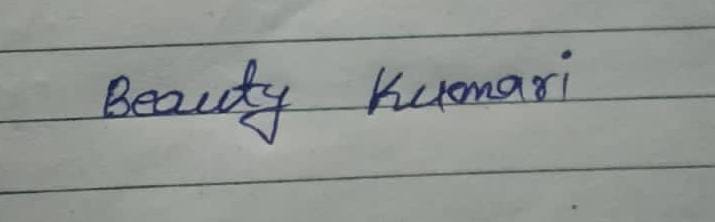 Beauty Kumari